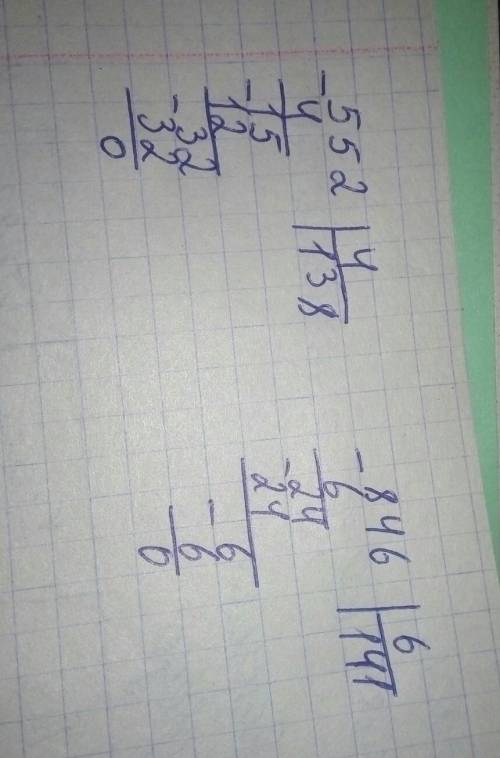 -552 | 4
4 | 138
15
-12
32
-32
0
-846 | 6
6 | 141
24
-24
6
-6
0